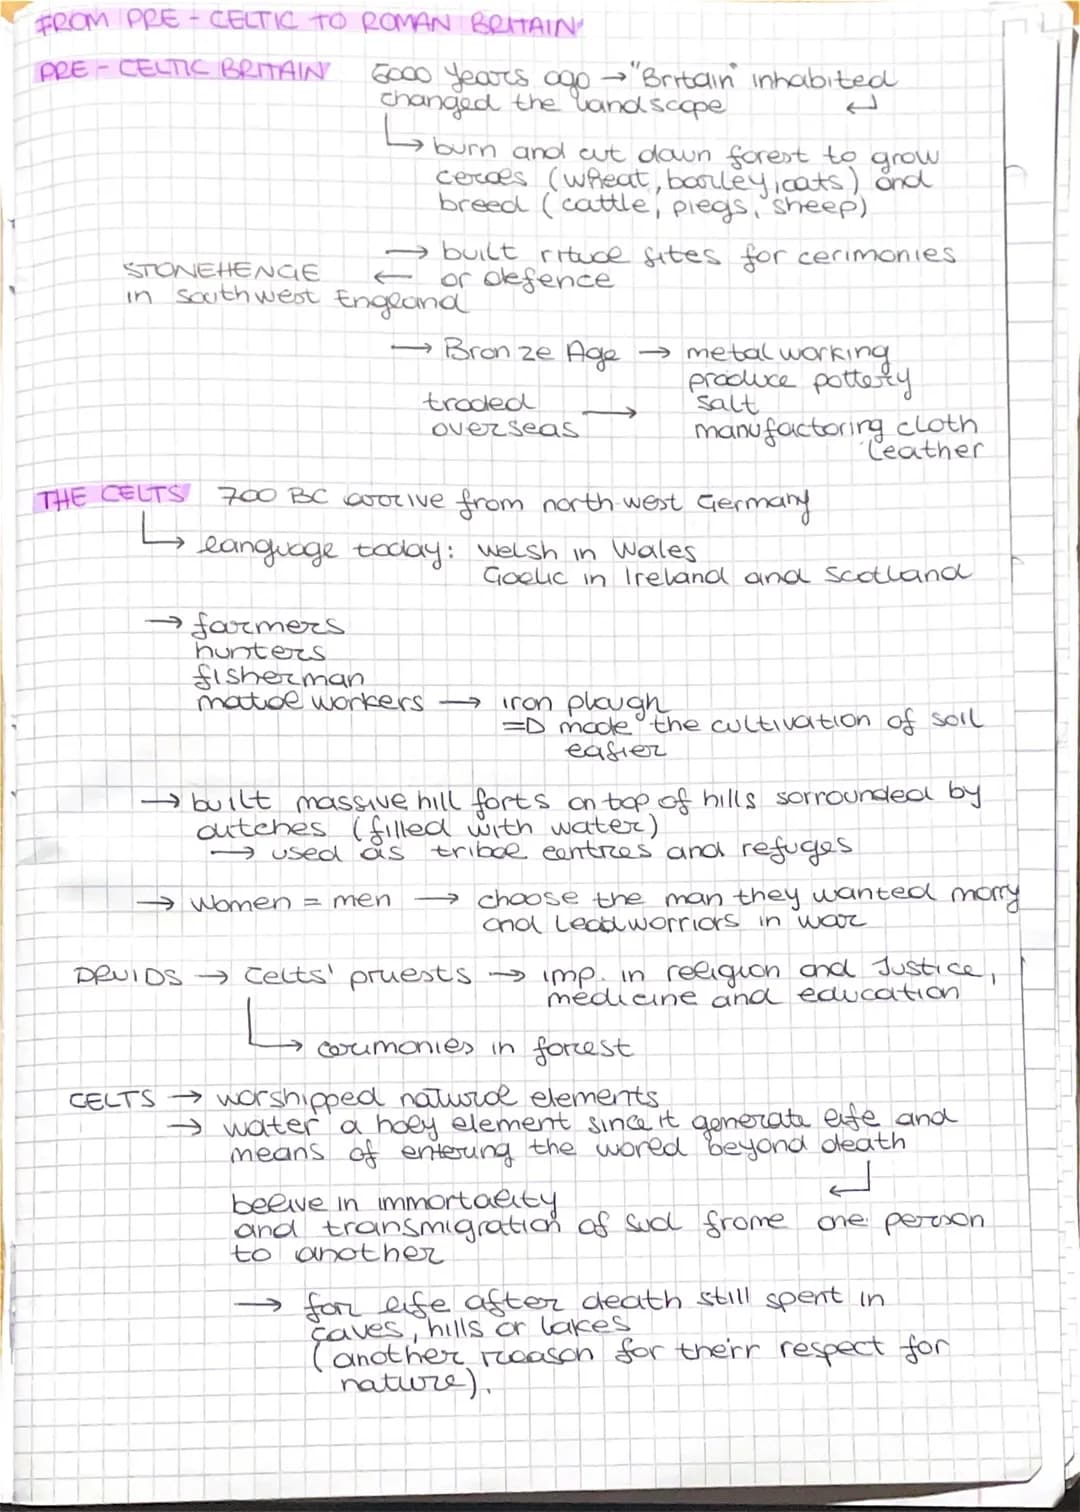 FROM PRE - CELTIC TO ROMAN BRITAIN
PRE - CELTIC BRITAIN 5000 years ago → "Britain" inhabited
changed the landscape ↵
↳ burn and cut down forest to grow
cereals (wheat, barley, oats) and
breed (cattle, piegs, sheep)
→ built ritual sites for cerimonies
STONEHENGE ← or defence
in southwest England
→ Bronze Age → metal working
produce pottery
traded → salt
overseas manufactoring cloth
leather
THE CELTS 700 BC arrive from north-west Germany
↳ language today: Welsh in Wales
Gaelic in Ireland and Scotland
→ farmers
hunters
fisherman
matal workers → iron plough
=D made the cultivation of soil
easier
→ built massive hill forts on top of hills sorrounded by
dutches (filled with water)
→ used as tribal centres and refuges
→ Women = men → choose the man they wanted marry
and lead worriors in war
DRUIDS → Celts' priests → imp. in religion and Justice,
medicine and education
↳ cerimonies in forrest
CELTS → worshipped natural elements
→ water a holy element since it generate life and
means of entering the world beyond death
↵
belive in immortality
and transmigration of soul frome one person
to another
→ for life after death still spent in
caves, hills or lakes
(another reason for theirr respect for
nature).